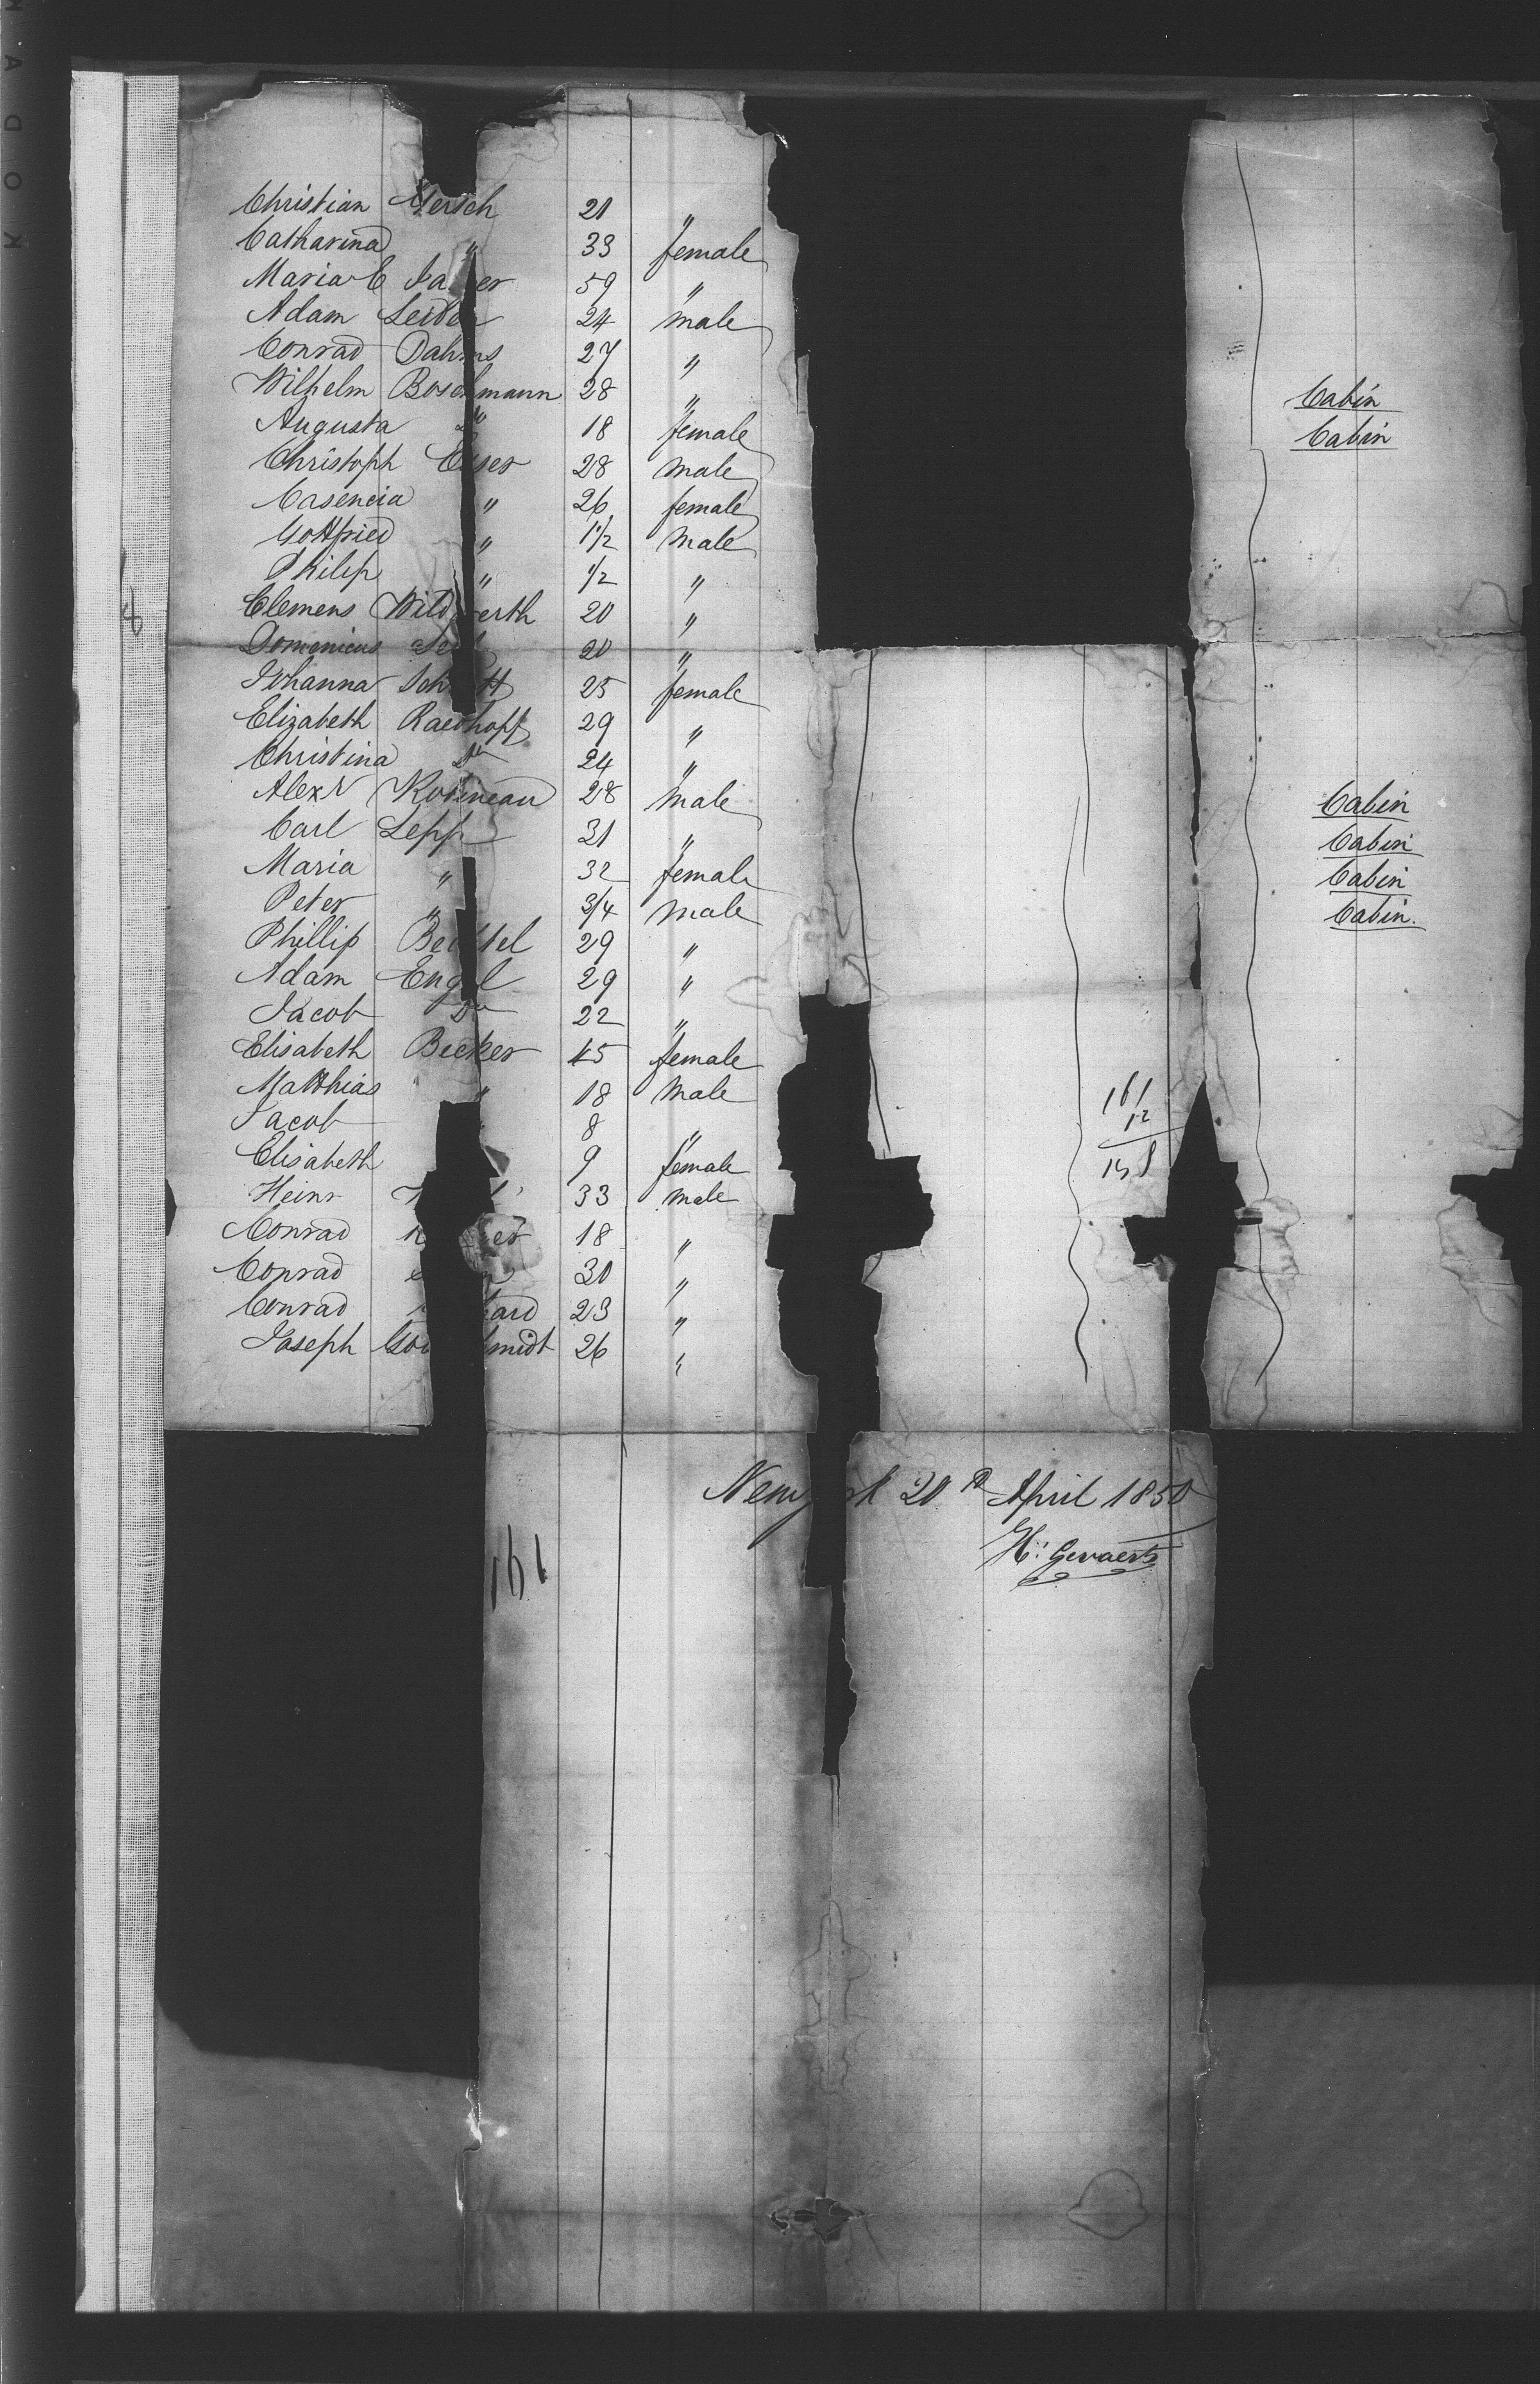 Christian Gersch 21 "
Catharina " 33 female
Maria E 59 "
Adam 24 male
Conrad Dahms 27 "
Wilhelm Boschmann 28 "
Cabin
Augusta Do 18 female
Cabin
Christoph 28 male
Casencia " 26 female
Gottfried " 1 1/2 male
Philip " 1/2 "
Clemens 20 "
Domenicus 20 "
Johanna 25 female
Elizabeth Raedhoff 29 "
Christina Do 24 "
Alexr 28 male
Cabin
Carl Lepp 31 "
Cabin
Maria " 32 female
Cabin
Peter " 3/4 male
Cabin.
Phillip 29 "
Adam Engel 29 "
Jacob Do 22 "
Elisabeth Becker 45 female
Matthias " 18 male
161
Jacob 8 "
12
Elisabeth 9 female
Heinr 33 male
Conrad 18 "
Conrad 30 "
Conrad 23 "
Joseph 26 "
20 April 1850
H. Gevaerts
161
KODAK